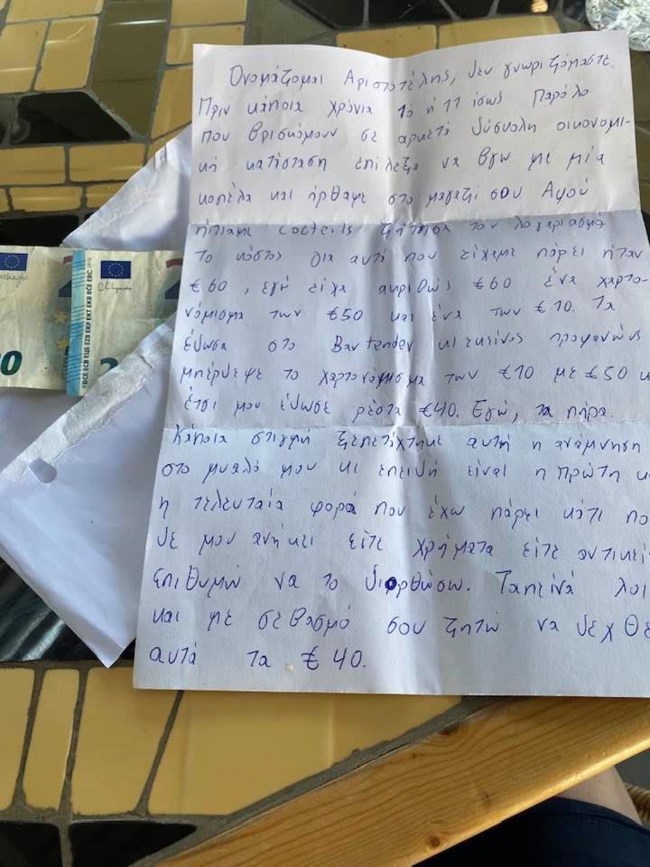 Ονομάζομαι Αριστοτέλης, δεν γνωριζόμαστε.
Πριν κάποια χρόνια 10 ή 11 ίσως Παρόλο
που βρισκόμουν σε αρκετά δύσκολη οικονομι-
κή κατάσταση επέλεξα να βγω με μία
κοπέλα και ήρθαμε στο μαγαζί σου Αφού
ήπιαμε cocteils ζήτησα τον λογαριασμό
το κόστος για αυτά που είχαμε πάρει ήταν
€60, εγώ είχα ακριβώς €60 ένα χαρτο-
νόμισμα των €50 και ένα των €10. Τα
έδωσα στο Bartender κι εκείνος προφανώς
μπέρδεψε το χαρτονόμισμα των €10 με €50 κ
έτσι μου έδωσε ρέστα €40. Εγώ, τα πήρα.
Κάποια στιγμή ξεπετάχτηκε αυτή η ανάμνηση
στο μυαλό μου κι επειδή είναι η πρώτη κ
η τελευταία φορά που έχω πάρει κάτι πο
δε μου ανήκει είτε χρήματα είτε αντικεί
επιθυμώ να το διορθώσω. Ταπεινά λοι
και με σεβασμό σου ζητώ να δεχθε
αυτά τα €40.